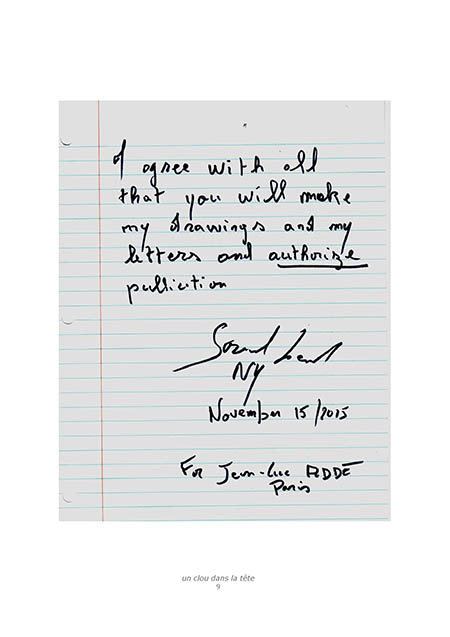 I agree with all
that you will make
my drawings and my
letters and authorize
publication
NY
November 15/2015
For Jean-Luc
Paris
un clou dans la tête
9